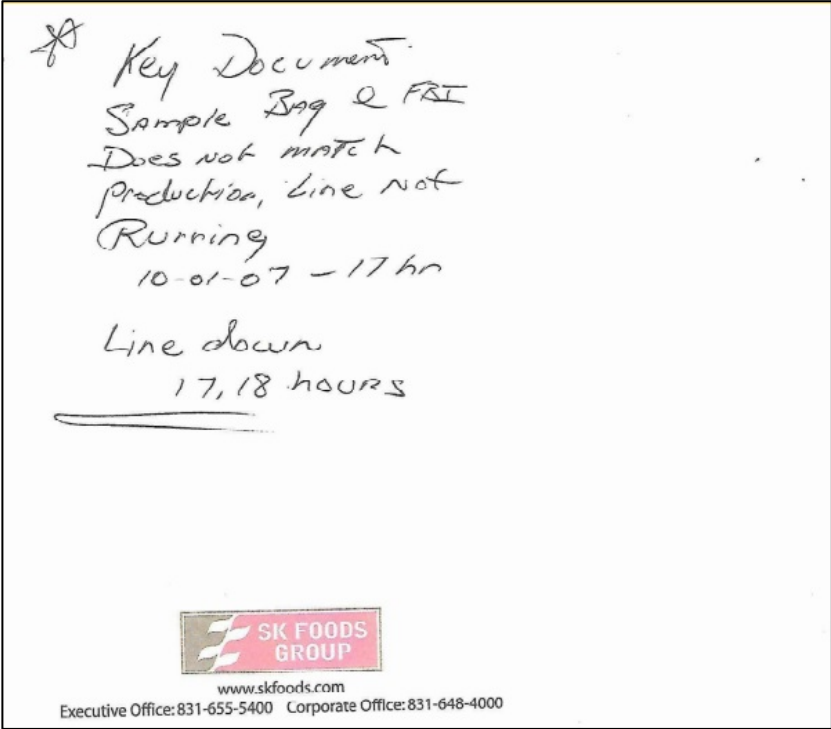 Key Document
Sample Bag @ FBI
Does not match
production, Line not
Running
10-01-07 - 17 hr
Line down
17, 18 hours
SK FOODS
GROUP
www.skfoods.com
Executive Office: 831-655-5400 Corporate Office: 831-648-4000